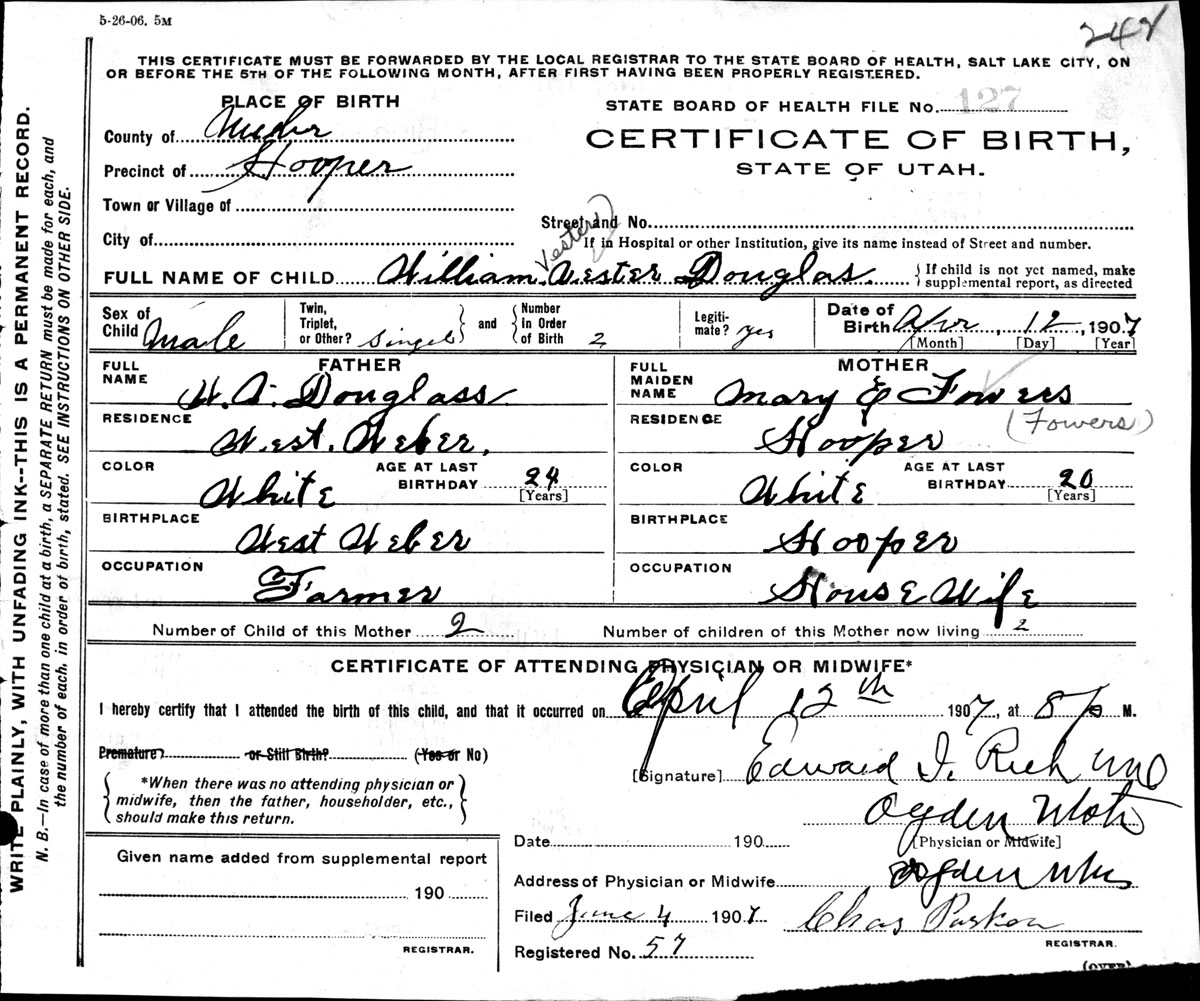 5-26-06. 5M
248
THIS CERTIFICATE MUST BE FORWARDED BY THE LOCAL REGISTRAR TO THE STATE BOARD OF HEALTH, SALT LAKE CITY, ON
OR BEFORE THE 5TH OF THE FOLLOWING MONTH, AFTER FIRST HAVING BEEN PROPERLY REGISTERED.
WRITE PLAINLY, WITH UNFADING INK--THIS IS A PERMANENT RECORD.
N. B.—In case of more than one child at a birth, a SEPARATE RETURN must be made for each, and
the number of each, in order of birth, stated. SEE INSTRUCTIONS ON OTHER SIDE.
PLACE OF BIRTH
County of Weber
Precinct of Hooper
Town or Village of
City of
STATE BOARD OF HEALTH FILE No. 127
CERTIFICATE OF BIRTH,
STATE OF UTAH.
Street and No.
If in Hospital or other Institution, give its name instead of Street and number.
Vester)
FULL NAME OF CHILD William Vester Douglas. { If child is not yet named, make
supplemental report, as directed
Sex of Child Male
Twin, Triplet, or Other? Singel } and { Number in Order of Birth 2
Legitimate? yes
Date of Birth Apr, 12, 1907
[Month] [Day] [Year]
FATHER
FULL NAME W. A. Douglass
RESIDENCE West. Weber.
COLOR White AGE AT LAST BIRTHDAY 24 [Years]
BIRTHPLACE West Weber
OCCUPATION Farmer
MOTHER
FULL MAIDEN NAME Mary E Fowers
(Fowers)
RESIDENCE Hooper
COLOR White AGE AT LAST BIRTHDAY 20 [Years]
BIRTHPLACE Hooper
OCCUPATION House Wife
Number of Child of this Mother 2 Number of children of this Mother now living 2
CERTIFICATE OF ATTENDING PHYSICIAN OR MIDWIFE*
I hereby certify that I attended the birth of this child, and that it occurred on April 12th 1907, at 8 P. M.
Premature? or Still Birth? (Yes or No)
*When there was no attending physician or
midwife, then the father, householder, etc.,
should make this return.
[Signature] Edward I. Rich MD
Ogden Utah
[Physician or Midwife]
Given name added from supplemental report
190
REGISTRAR.
Date 190
Address of Physician or Midwife Ogden Utah
Filed June 4 1907 Chas Parker
REGISTRAR.
Registered No. 57
(OVER)